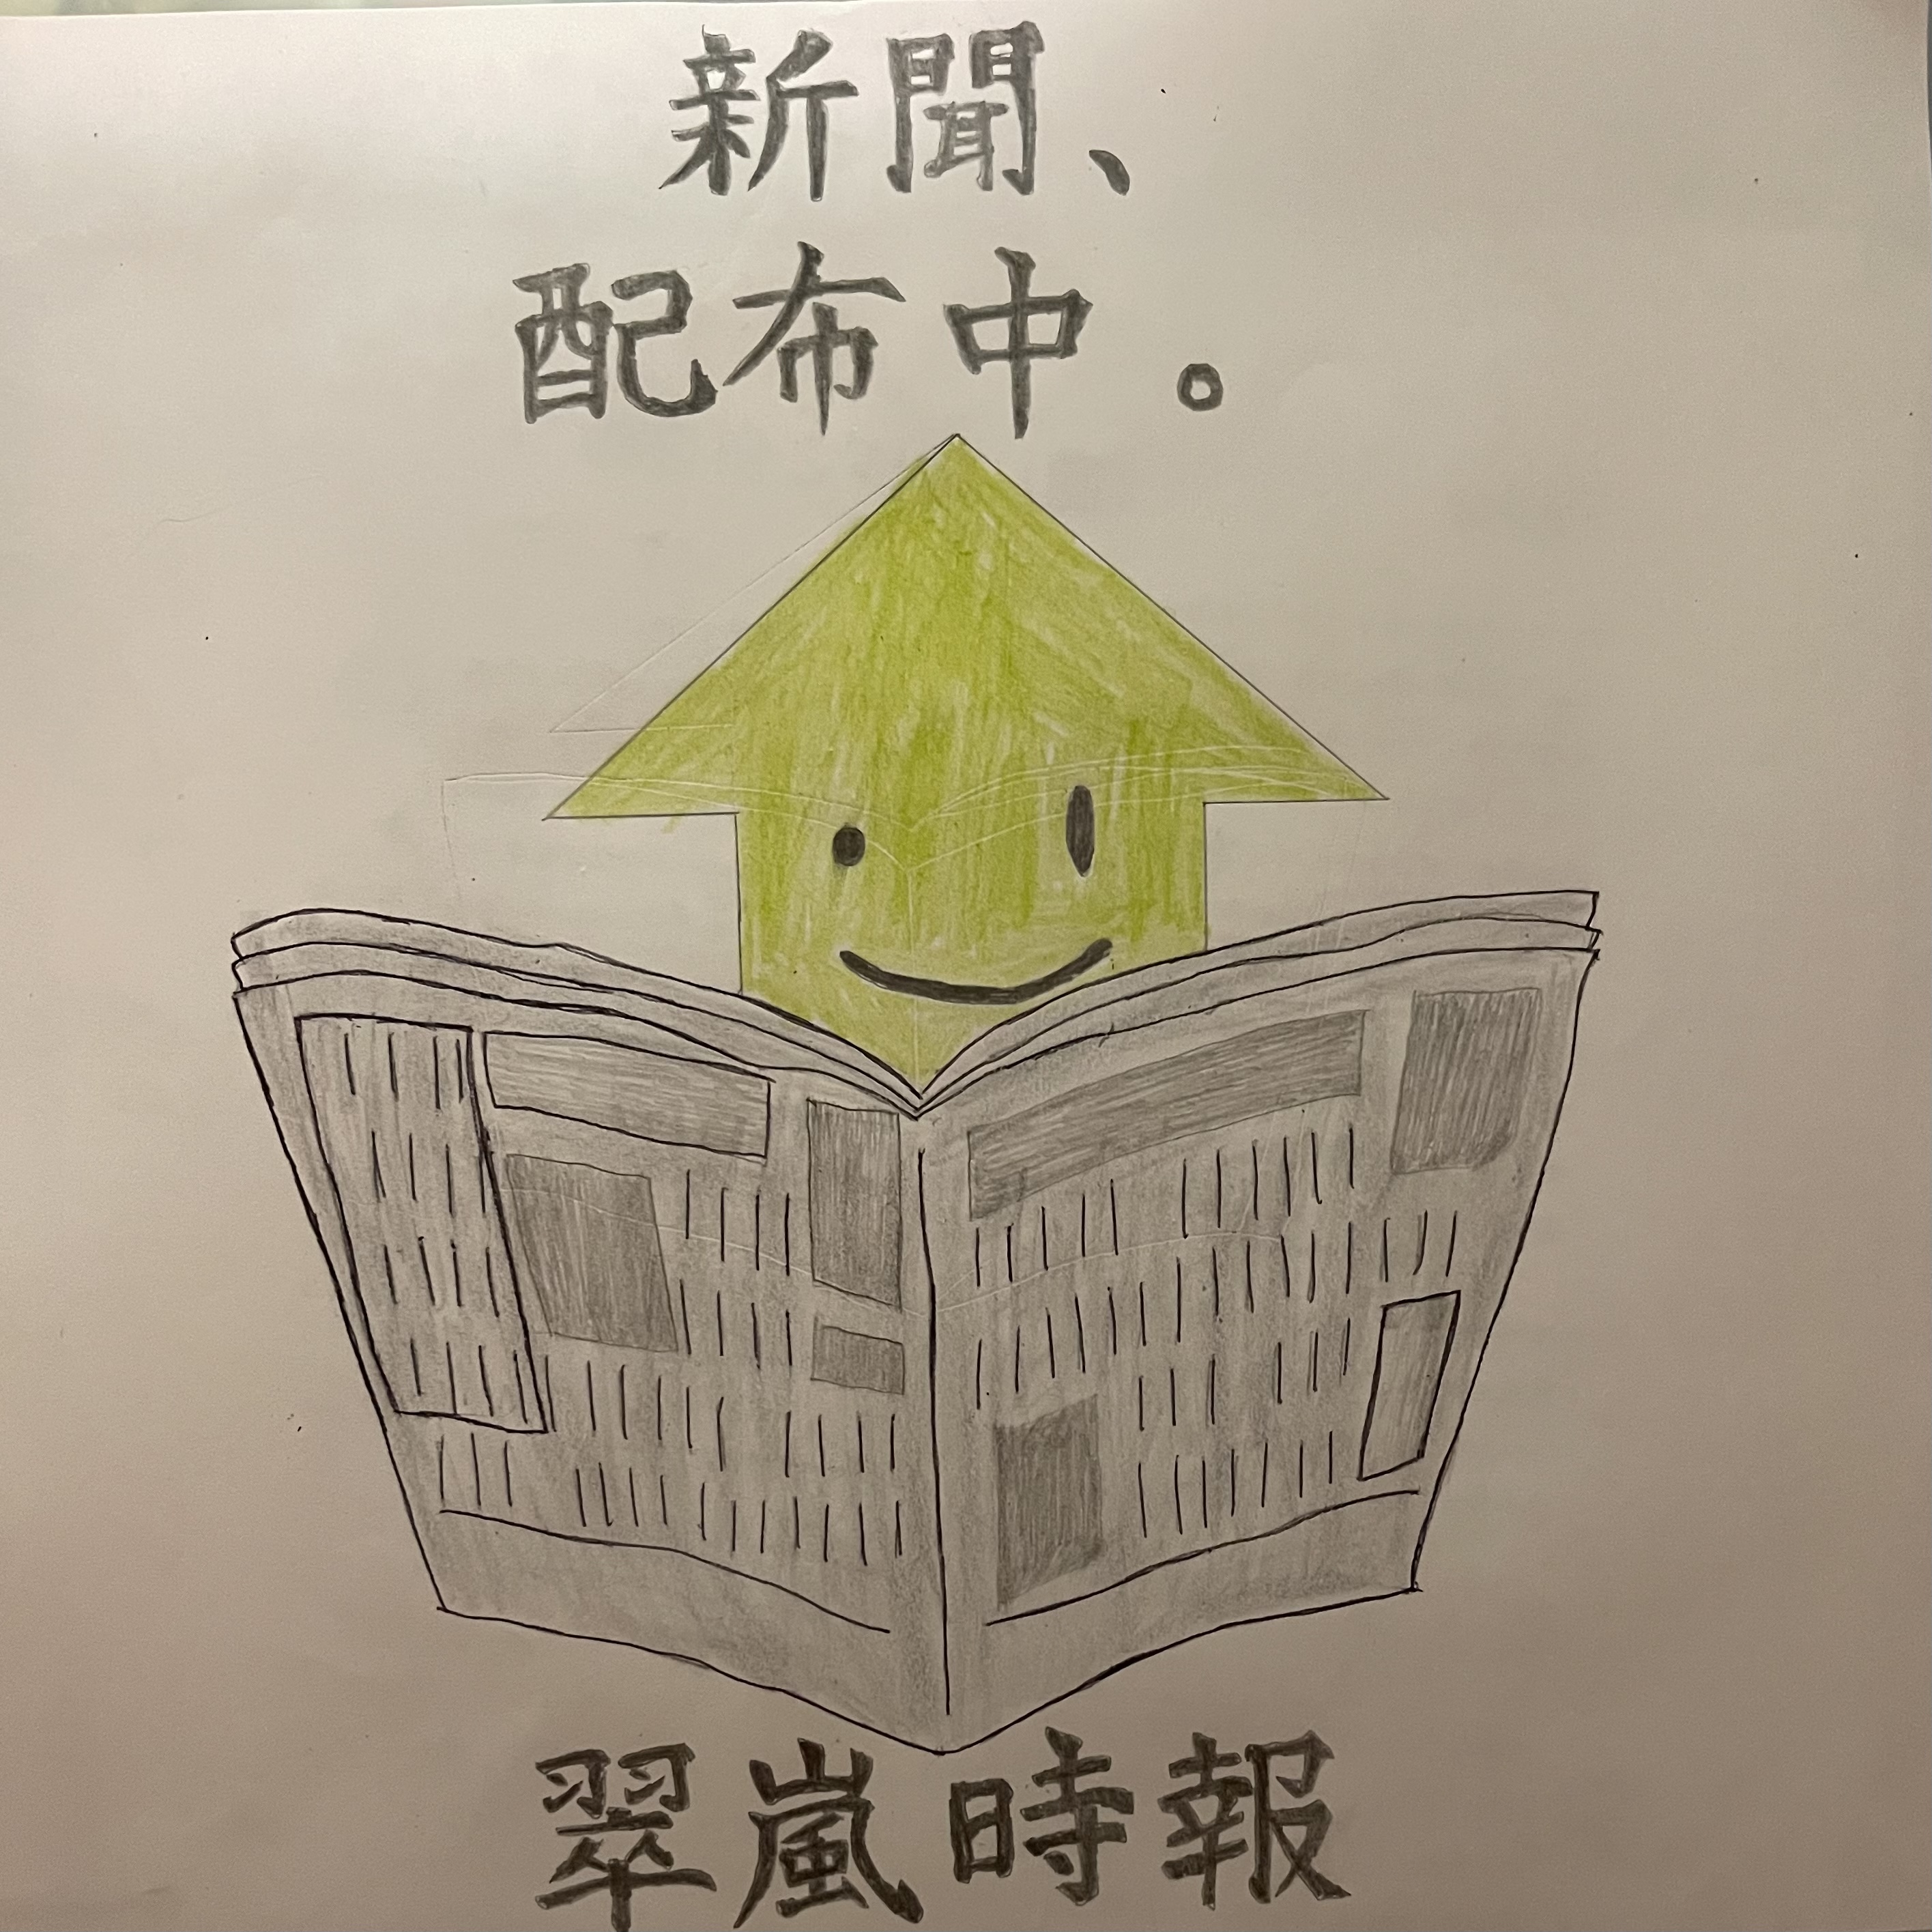 新聞、
配布中。
翠嵐時報